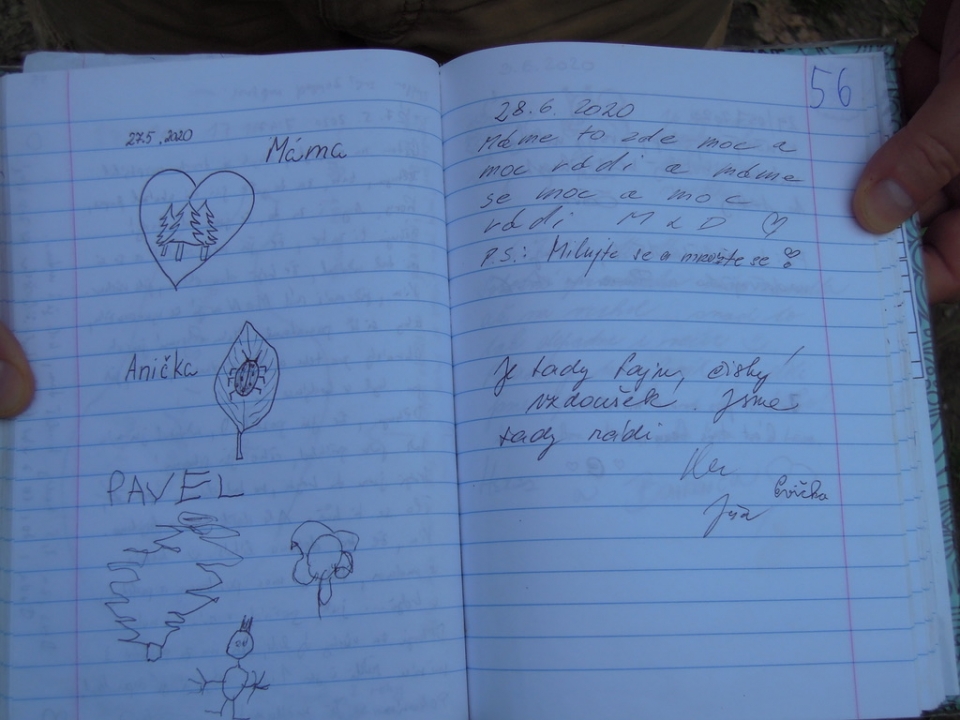 27.5.2020
Máma
Anička
PAVEL
56
28.6.2020
Máme to zde moc a
moc rádi a máme
se moc a moc
rádi M & D
P.S.: Milujte se a množte se
Je tady fajn, čistý
vzdoušek. Jsme
tady rádi
Evička